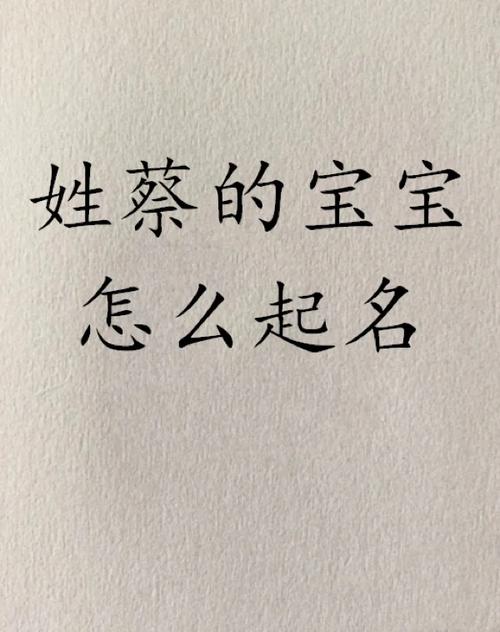 姓蔡的宝宝
怎么起名